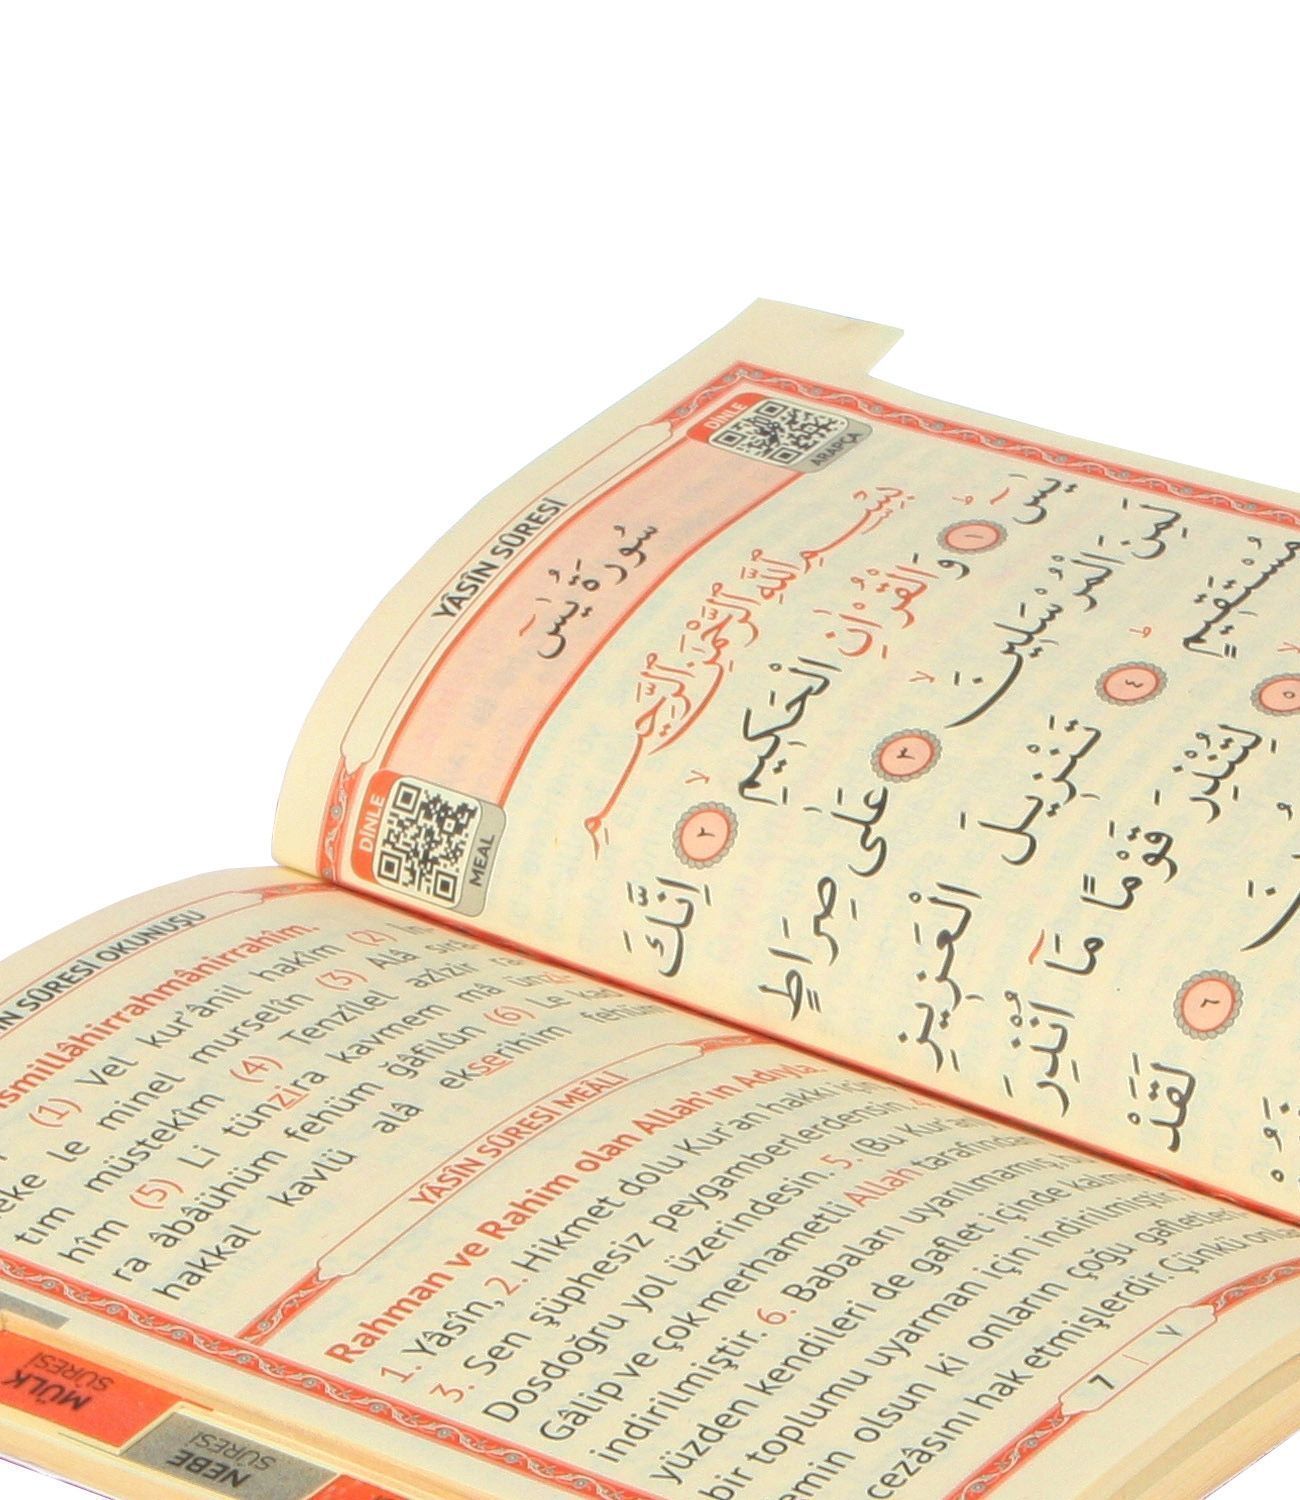 YÂSÎN SÛRESİ
DİNLE
ARAPÇA
سُورَةُ يٰسٓ
DİNLE
MEAL
بِسْمِ اللّٰهِ الرَّحْمٰنِ الرَّحِيمِ
يٰسٓ ۚ ﴿١﴾ وَالْقُرْاٰنِ الْحَكِيمِ ۙ ﴿٢﴾ اِنَّكَ
لَمِنَ الْمُرْسَلِينَ ۙ ﴿٣﴾ عَلٰى صِرَاطٍ
مُسْتَقِيمٍ ۜ ﴿٤﴾ تَنْزِيلَ الْعَزِيزِ
﴿٥﴾ لِتُنْذِرَ قَوْمًا مَٓا اُنْذِرَ
﴿٦﴾ لَقَدْ
SÛRESİ OKUNUŞU
ismillâhirrahmânirrahîm.
(1) Vel kur'ânil hakîm (2) İn
neke le minel murselîn (3) Alâ sırâ
tim müstekîm (4) Tenzîlel azîzir ra
hîm (5) Li tünzira kavmem mâ ünzi
ra âbâühüm fehüm ğâfilûn (6) Le kad
hakkal kavlü alâ ekserihim fehüm
YÂSÎN SÛRESİ MEÂLİ
Rahman ve Rahim olan Allah'ın Adıyla.
1. Yâsîn, 2. Hikmet dolu Kur'an hakkı için
3. Sen şüphesiz peygamberlerdensin. 4.
Dosdoğru yol üzerindesin. 5. (Bu Kur'an
Gâlip ve çok merhametli Allah tarafından
indirilmiştir. 6. Babaları uyarılmamış, bu
yüzden kendileri de gaflet içinde kalmış
bir toplumu uyarman için indirilmiştir.
emin olsun ki onların çoğu gafletleri
cezâsını hak etmişlerdir. Çünkü onlar
7
٧
MÜLK
SÛRESİ
NEBE
SÛRESİ